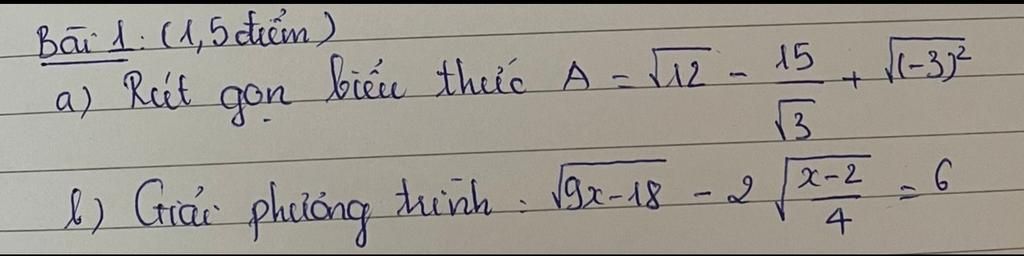 Bài 1: (1,5 điểm)
a) Rút gọn biểu thức A = √12 - 15/√3 + √(-3)²
b) Giải phương trình: √9x-18 - 2√x-2/4 = 6